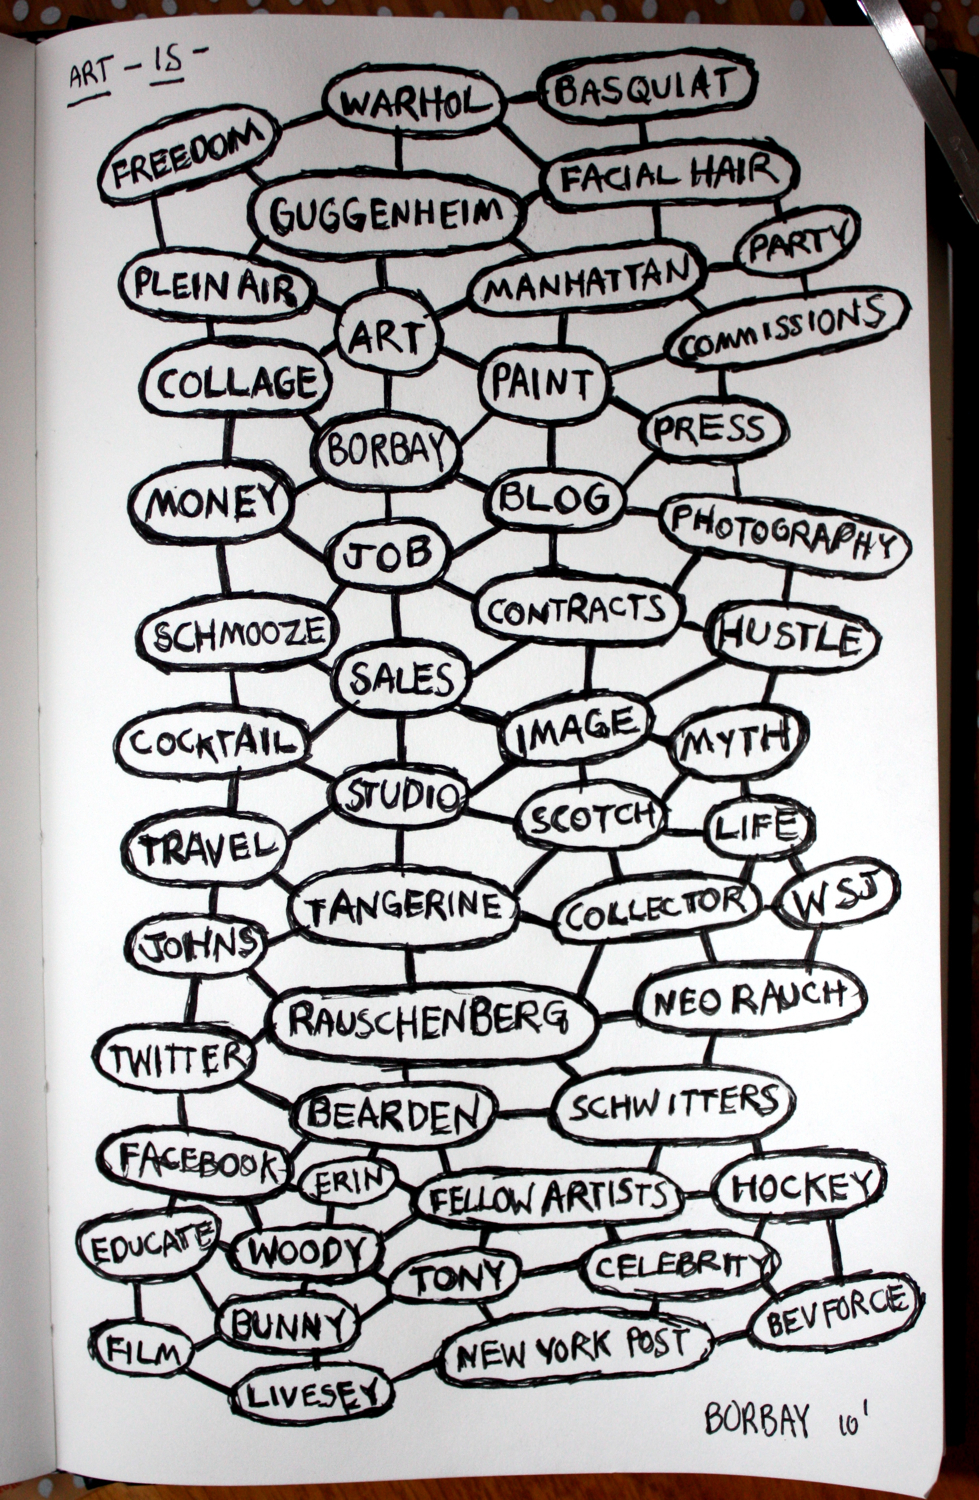 ART - IS -
WARHOL
BASQUIAT
FREEDOM
FACIAL HAIR
GUGGENHEIM
PARTY
PLEIN AIR
MANHATTAN
ART
COMMISSIONS
COLLAGE
PAINT
BORBAY
PRESS
MONEY
BLOG
JOB
PHOTOGRAPHY
SCHMOOZE
CONTRACTS
HUSTLE
SALES
COCKTAIL
IMAGE
MYTH
STUDIO
SCOTCH
LIFE
TRAVEL
TANGERINE
COLLECTOR
WSJ
JOHNS
RAUSCHENBERG
NEO RAUCH
TWITTER
BEARDEN
SCHWITTERS
FACEBOOK
ERIN
FELLOW ARTISTS
HOCKEY
EDUCATE
WOODY
TONY
CELEBRITY
BUNNY
BEVFORCE
FILM
NEW YORK POST
LIVESEY
BORBAY 10'